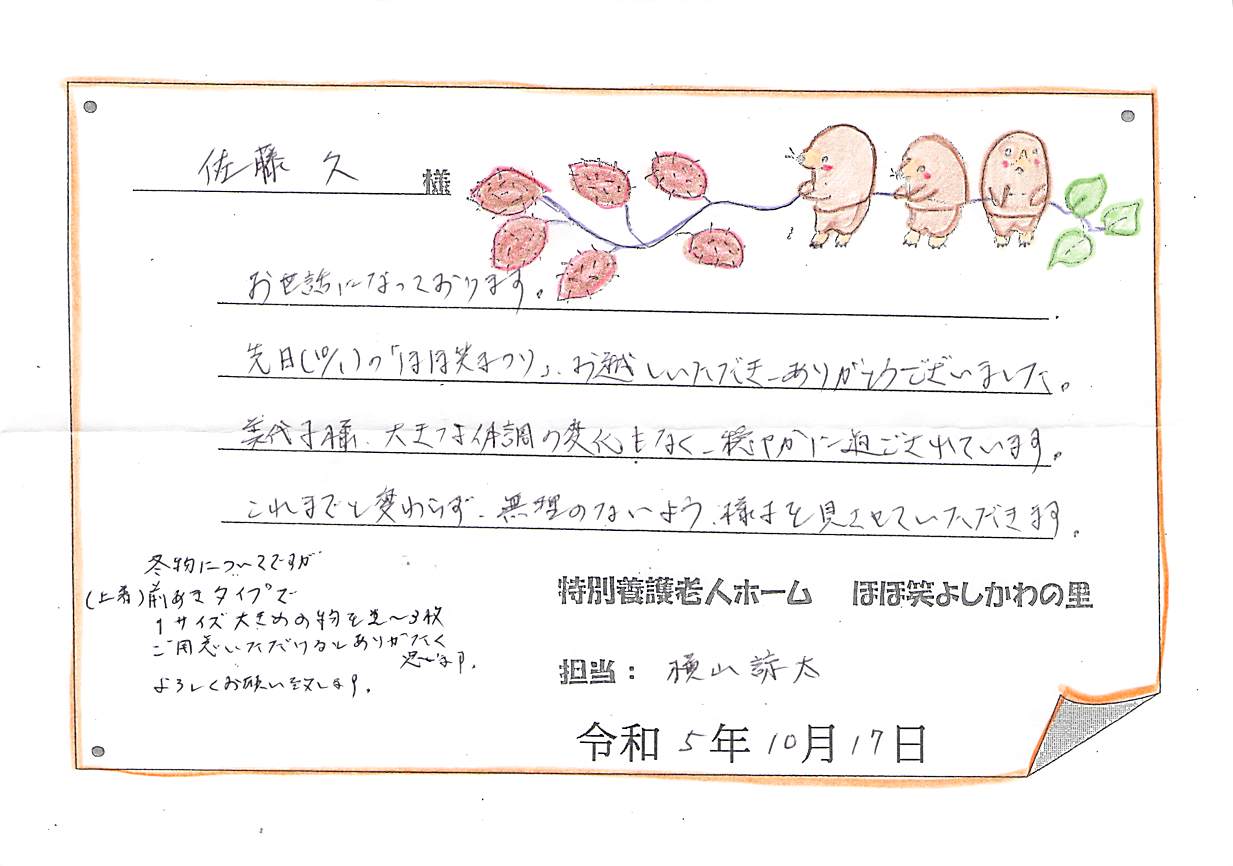 佐藤 久 様
お世話になっております。
先日(10/1)の「ほほ笑まつり」、お越しいただき、ありがとうございました。
美代子様、大きな体調の変化もなく、穏やかに過ごされています。
これまでと変わらず、無理のないよう、様子を見させていただきます。
冬物についてですが
(上着)前あきタイプで
1サイズ大きめの物を2〜3枚
ご用意いただけるとありがたく
思います。
よろしくお願い致します。
特別養護老人ホーム ほほ笑よしかわの里
担当： 横山諒太
令和 5年 10月 17日